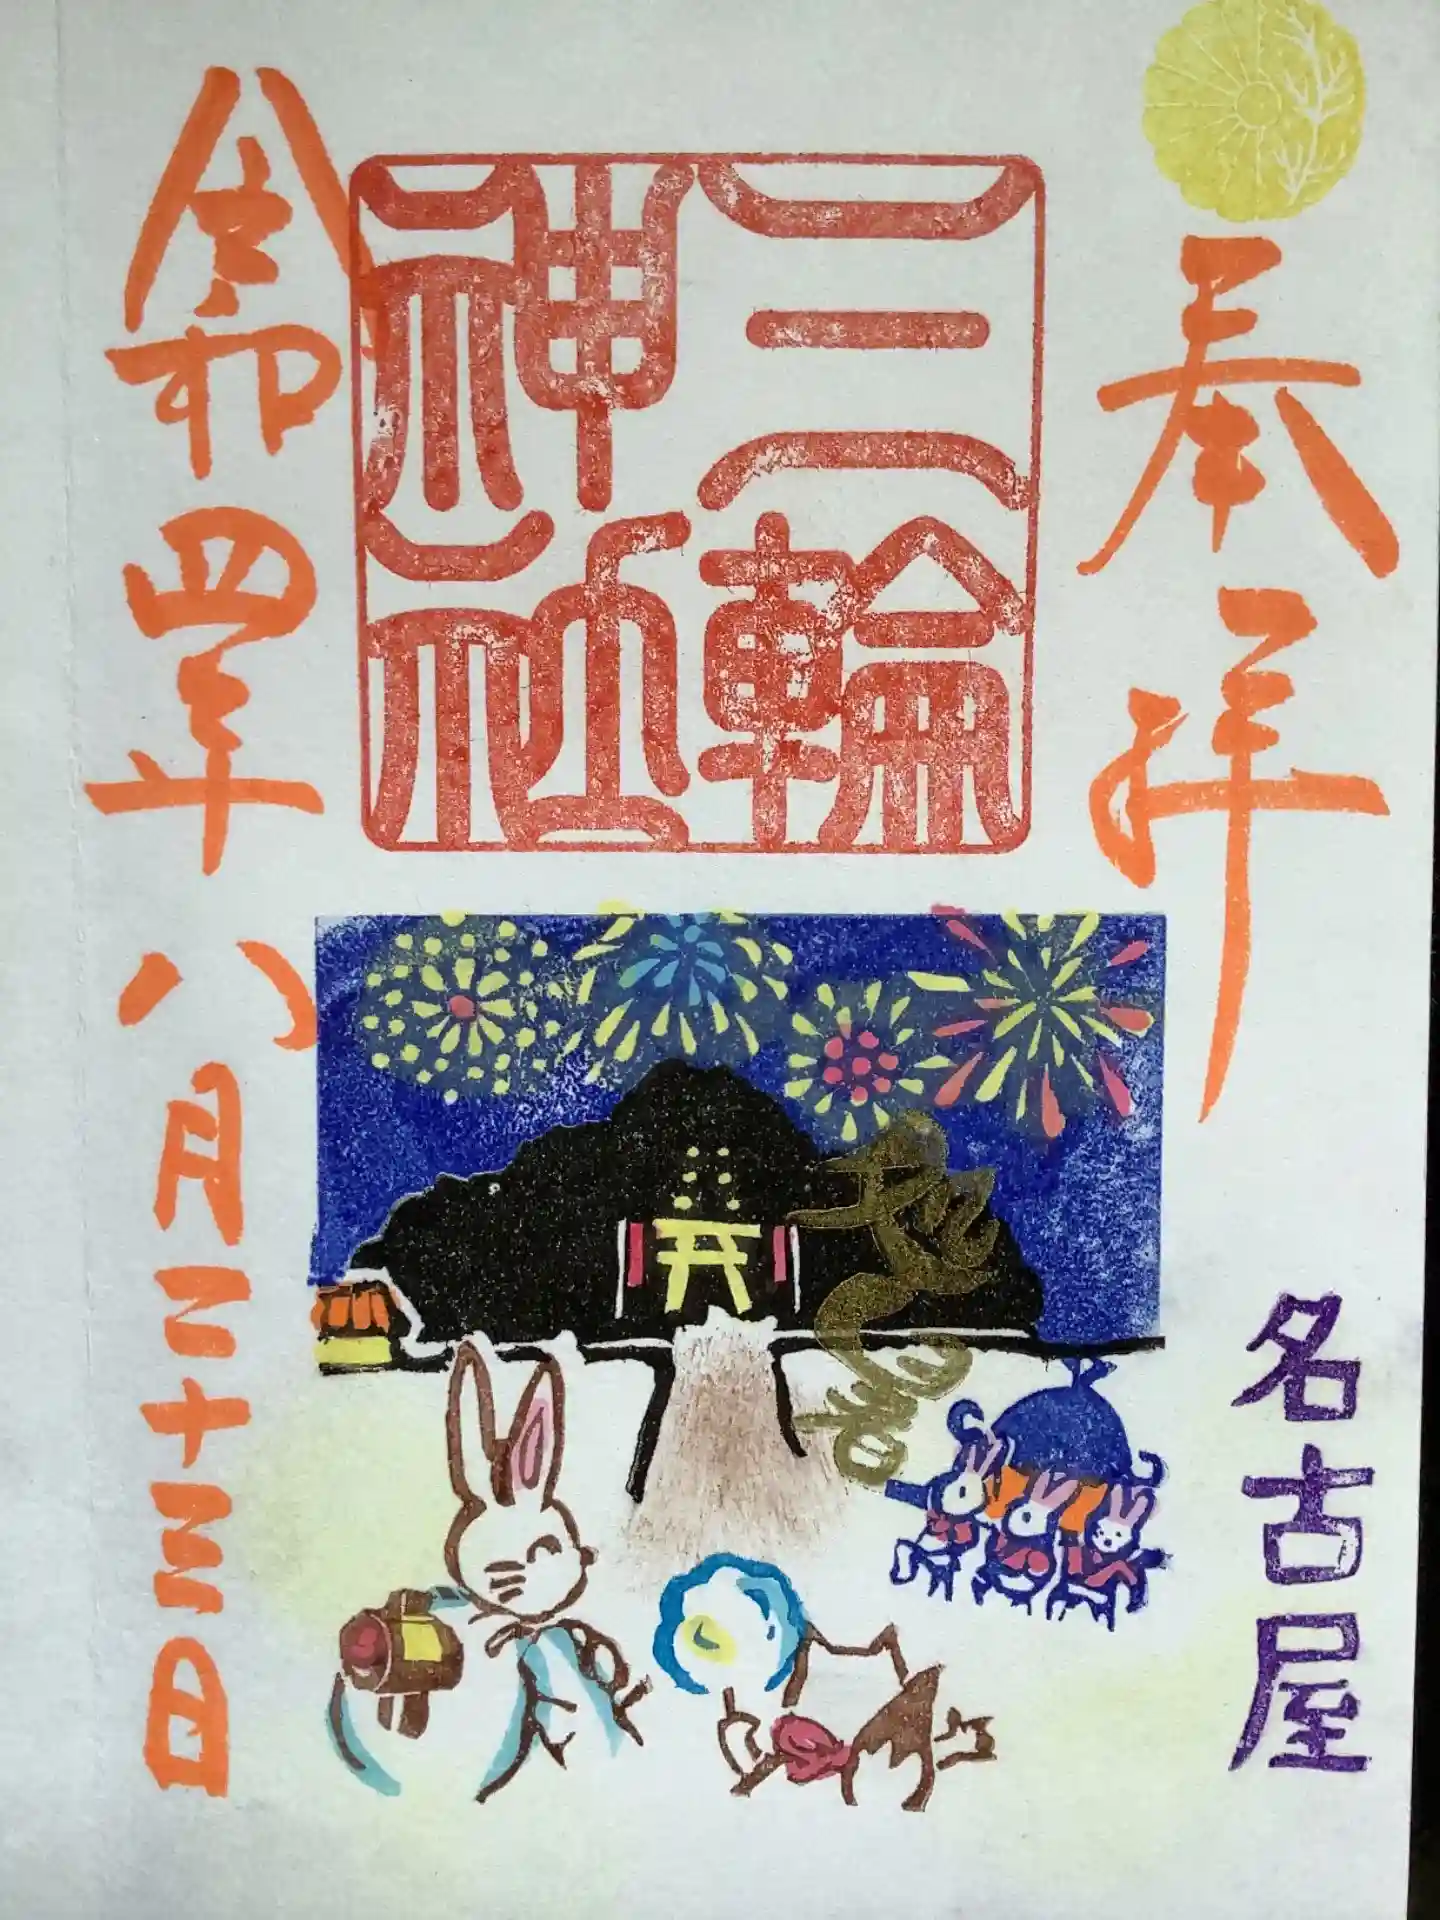 奉拝
名古屋
三輪
神社
令和四年八月二十三日